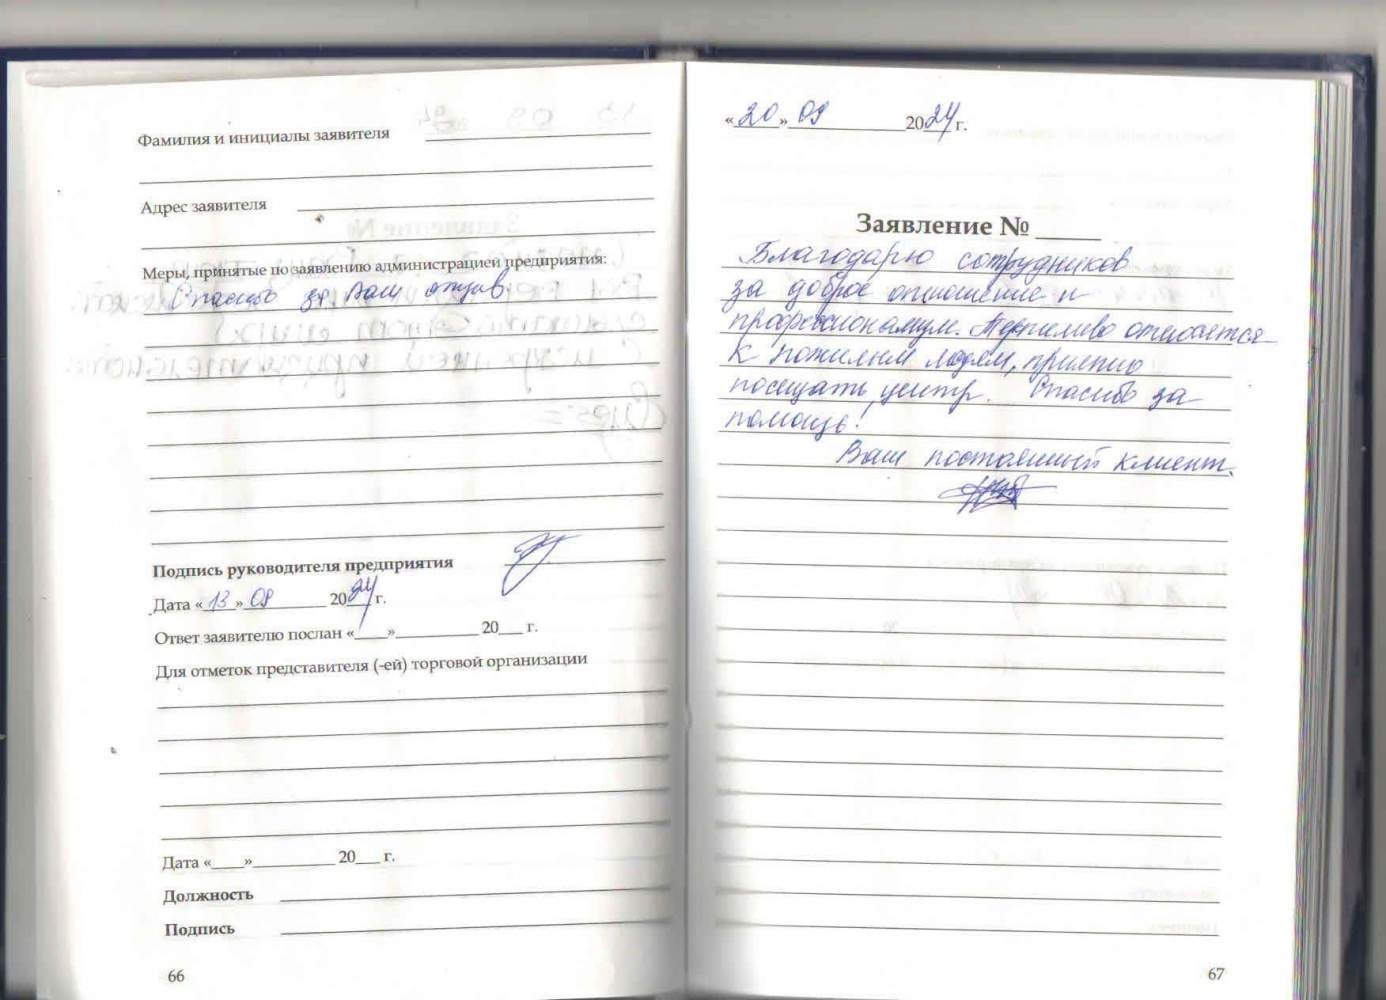 Фамилия и инициалы заявителя
Адрес заявителя
Меры, принятые по заявлению администрацией предприятия:
Спасибо за Ваш отзыв
Подпись руководителя предприятия
Дата «13» 09 2024 г.
Ответ заявителю послан «____»__________ 20___ г.
Для отметок представителя (-ей) торговой организации
Дата «____»__________ 20___ г.
Должность
Подпись
66
«20» 09 2024 г.
Заявление № _____
Благодарю сотрудников
за доброе отношение и
профессионализм. Терпеливо относятся
к пожилым людям, приятно
посещать центр. Спасибо за
помощь!
Ваш постоянный клиент.
67